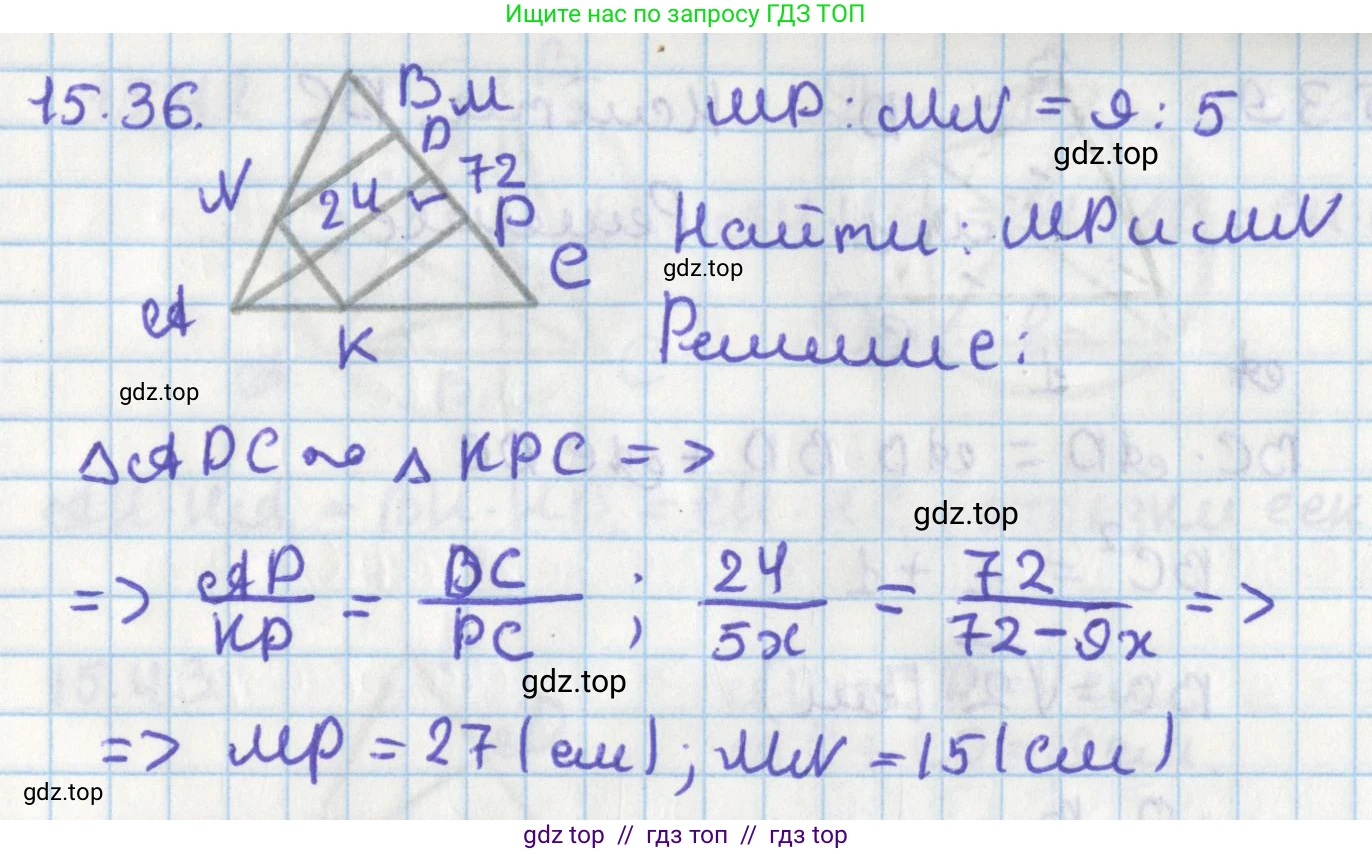 Ищите нас по запросу ГДЗ ТОП
15.36.
B M
D
72
N
24
P
C
A
K
MP : MN = 9 : 5
gdz.top
Найти: MP и MN
gdz.top
Решение:
gdz.top
△ADC ~ △KPC =>
gdz.top
=> AD/KP = DC/PC ; 24/5x = 72/72-9x =>
gdz.top
=> MP = 27 (см); MN = 15 (см)
gdz.top
gdz top // гдз топ // гдз top